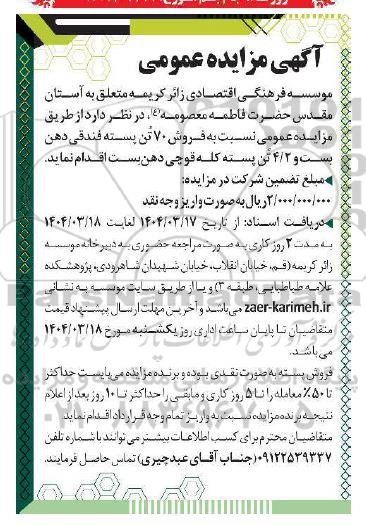 آگهی مزایده عمومی
موسسه فرهنگی اقتصادی زائر کریمه متعلق به آستان
مقدس حضرت فاطمه معصومه(ع)، در نظر دارد از طریق
مزایده عمومی نسبت به فروش ۷۰ تُن پسته فندقی دهن
بست و ۴/۲ تُن پسته کله قوچی دهن بست اقدام نماید.
مبلغ تضمین شرکت در مزایده:
۲/۰۰۰/۰۰۰/۰۰۰ ریال به صورت واریز وجه نقد
دریافت اسناد: از تاریخ ۱۴۰۴/۰۳/۱۷ لغایت ۱۴۰۴/۰۳/۱۸
به مدت ۲ روز کاری به صورت مراجعه حضوری به دبیرخانه موسسه
زائر کریمه (قم، خیابان انقلاب، خیابان شهیدان شاهرودی، پژوهشکده
علامه طباطبایی، طبقه ۳) و یا از طریق سایت موسسه به نشانی
zaer-karimeh.ir می‌باشد و آخرین مهلت ارسال پیشنهاد قیمت
متقاضیان تا پایان ساعت اداری روز یکشنبه مورخ ۱۴۰۴/۰۳/۱۸
می باشد.
فروش پسته به صورت نقدی بوده و برنده مزایده می بایست حداکثر
تا ۵۰٪ معامله را تا ۵ روز کاری و مابقی را حداکثر تا ۱۰ روز بعد از اعلام
نتیجه برنده مزایده نسبت به واریز تمام وجه قرارداد اقدام نماید
متقاضیان محترم برای کسب اطلاعات بیشتر می توانند با شماره تلفن
۰۹۱۲۲۵۳۹۳۳۷ (جناب آقای عبدچیری) تماس حاصل فرمایند.